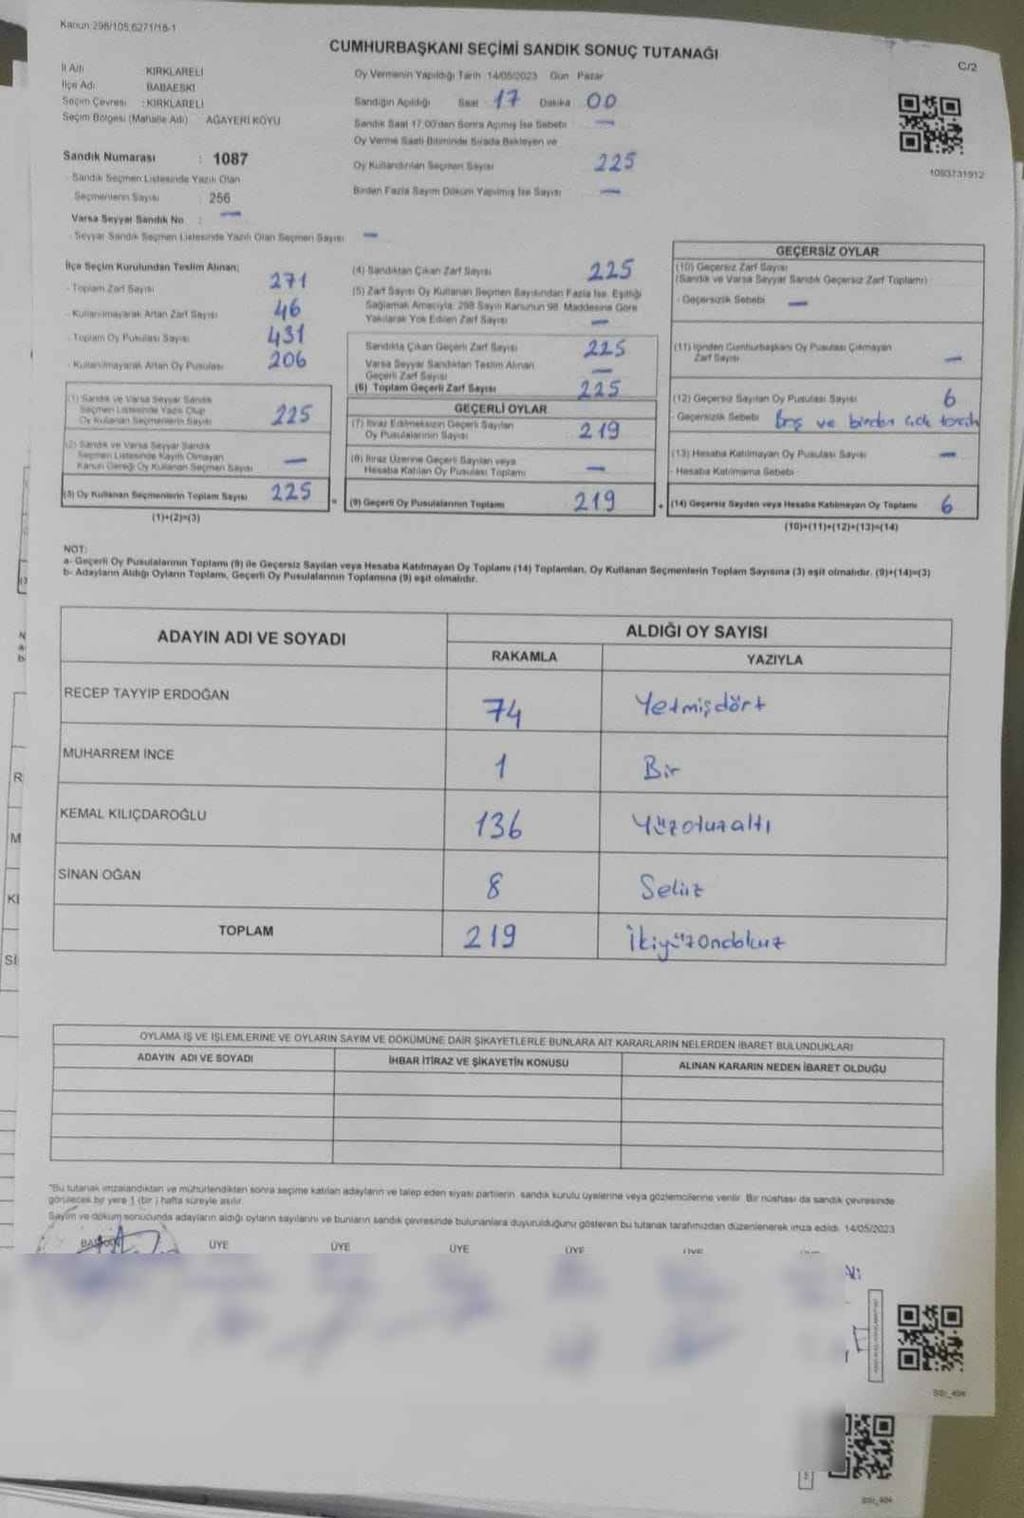 Kanun:298/105;6271/18-1
CUMHURBAŞKANI SEÇİMİ SANDIK SONUÇ TUTANAĞI
C/2
İl Adı : KIRKLARELİ
İlçe Adı : BABAESKİ
Seçim Çevresi : KIRKLARELİ
Seçim Bölgesi (Mahalle Adı) AĞAYERİ KÖYÜ
Sandık Numarası : 1087
Sandık Seçmen Listesinde Yazılı Olan
Seçmenlerin Sayısı : 256
Varsa Seyyar Sandık No : —
Seyyar Sandık Seçmen Listesinde Yazılı Olan Seçmen Sayısı —
Oy Vermenin Yapıldığı Tarih 14/05/2023 Gün Pazar
Sandığın Açıldığı Saat 17 Dakika 00
Sandık Saat 17.00'dan Sonra Açılmış İse Sebebi —
Oy Verme Saati Bitiminde Sırada Bekleyen ve
Oy Kullandırılan Seçmen Sayısı 225
Birden Fazla Sayım Döküm Yapılmış İse Sayısı —
1093731912
İlçe Seçim Kurulundan Teslim Alınan;
- Toplam Zarf Sayısı 271
- Kullanılmayarak Artan Zarf Sayısı 46
- Toplam Oy Pusulası Sayısı 431
- Kullanılmayarak Artan Oy Pusulası 206
(1) Sandık ve Varsa Seyyar Sandık
Seçmen Listesinde Yazılı Olup
Oy Kullanan Seçmenlerin Sayısı 225
(2) Sandık ve Varsa Seyyar Sandık
Seçmen Listesinde Kayıtlı Olmayan
Kanun Gereği Oy Kullanan Seçmen Sayısı —
(3) Oy Kullanan Seçmenlerin Toplam Sayısı 225
(1)+(2)=(3)
(4) Sandıktan Çıkan Zarf Sayısı 225
(5) Zarf Sayısı Oy Kullanan Seçmen Sayısından Fazla İse, Eşitliği
Sağlamak Amacıyla, 298 Sayılı Kanunun 98. Maddesine Göre
Yakılarak Yok Edilen Zarf Sayısı —
Sandıkta Çıkan Geçerli Zarf Sayısı 225
Varsa Seyyar Sandıktan Teslim Alınan
Geçerli Zarf Sayısı —
(6) Toplam Geçerli Zarf Sayısı 225
GEÇERLİ OYLAR
(7) İtiraz Edilmeksizin Geçerli Sayılan
Oy Pusulalarının Sayısı 219
(8) İtiraz Üzerine Geçerli Sayılan veya
Hesaba Katılan Oy Pusulası Toplamı —
= (9) Geçerli Oy Pusulalarının Toplamı 219
GEÇERSİZ OYLAR
(10) Geçersiz Zarf Sayısı
(Sandık ve Varsa Seyyar Sandık Geçersiz Zarf Toplamı)
- Geçersizlik Sebebi —
(11) İçinden Cumhurbaşkanı Oy Pusulası Çıkmayan
Zarf Sayısı —
(12) Geçersiz Sayılan Oy Pusulası Sayısı 6
- Geçersizlik Sebebi Boş ve birden çok tercih
(13) Hesaba Katılmayan Oy Pusulası Sayısı —
- Hesaba Katılmama Sebebi
+ (14) Geçersiz Sayılan veya Hesaba Katılmayan Oy Toplamı 6
(10)+(11)+(12)+(13)=(14)
NOT:
a- Geçerli Oy Pusulalarının Toplamı (9) ile Geçersiz Sayılan veya Hesaba Katılmayan Oy Toplamı (14) Toplamları, Oy Kullanan Seçmenlerin Toplam Sayısına (3) eşit olmalıdır. (9)+(14)=(3)
b- Adayların Aldığı Oyların Toplamı, Geçerli Oy Pusulalarının Toplamına (9) eşit olmalıdır.
ADAYIN ADI VE SOYADI ALDIĞI OY SAYISI
RAKAMLA YAZIYLA
RECEP TAYYİP ERDOĞAN 74 Yetmişdört
MUHARREM İNCE 1 Bir
KEMAL KILIÇDAROĞLU 136 Yüzotuzaltı
SİNAN OĞAN 8 Sekiz
TOPLAM 219 İkiyüzondokuz
OYLAMA İŞ VE İŞLEMLERİNE VE OYLARIN SAYIM VE DÖKÜMÜNE DAİR ŞİKAYETLERLE BUNLARA AİT KARARLARIN NELERDEN İBARET BULUNDUKLARI
ADAYIN ADI VE SOYADI İHBAR İTİRAZ VE ŞİKAYETİN KONUSU ALINAN KARARIN NEDEN İBARET OLDUĞU
"Bu tutanak imzalandıktan ve mühürlendikten sonra seçime katılan adayların ve talep eden siyasi partilerin sandık kurulu üyelerine veya gözlemcilerine verilir. Bir nüshası da sandık çevresinde
görülecek bir yere 1 (bir) hafta süreyle asılır.
Sayım ve döküm sonucunda adayların aldığı oyların sayılarını ve bunların sandık çevresinde bulunanlara duyurulduğunu gösteren bu tutanak tarafımızdan düzenlenerek imza edildi. 14/05/2023
BAŞKAN ÜYE ÜYE ÜYE ÜYE ÜYE